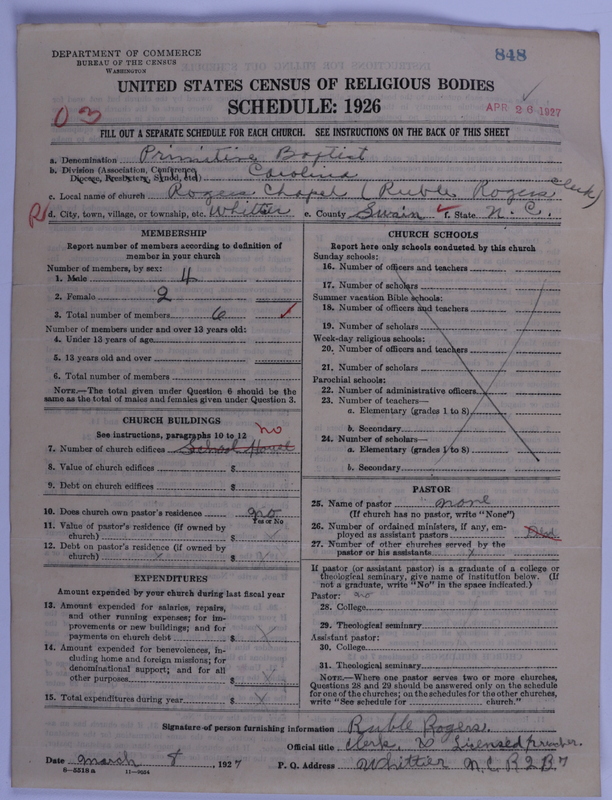 DEPARTMENT OF COMMERCE
BUREAU OF THE CENSUS
WASHINGTON
848
UNITED STATES CENSUS OF RELIGIOUS BODIES
SCHEDULE: 1926
APR 26 1927
03
FILL OUT A SEPARATE SCHEDULE FOR EACH CHURCH. SEE INSTRUCTIONS ON THE BACK OF THIS SHEET
a. Denomination Primitive Baptist
b. Division (Association, Conference, Diocese, Presbytery, Synod, etc.) Carolina
c. Local name of church Rogers Chapel (Ruble Rogers Clerk)
R d. City, town, village, or township, etc. Whittier e. County Swain f. State N. C.
MEMBERSHIP
Report number of members according to definition of
member in your church
Number of members, by sex:
1. Male 4
2. Female 2
3. Total number of members 6
Number of members under and over 13 years old:
4. Under 13 years of age
5. 13 years old and over
6. Total number of members
NOTE.—The total given under Question 6 should be the
same as the total of males and females given under Question 3.
CHURCH BUILDINGS
See instructions, paragraphs 10 to 12
no
7. Number of church edifices School House
8. Value of church edifices $
9. Debt on church edifices $
10. Does church own pastor's residence? no
Yes or No
11. Value of pastor's residence (if owned by
church) $
12. Debt on pastor's residence (if owned by
church) $
EXPENDITURES
Amount expended by your church during last fiscal year
13. Amount expended for salaries, repairs,
and other running expenses; for im-
provements or new buildings; and for
payments on church debt $
14. Amount expended for benevolences, in-
cluding home and foreign missions; for
denominational support; and for all
other purposes $
15. Total expenditures during year $
CHURCH SCHOOLS
Report here only schools conducted by this church
Sunday schools:
16. Number of officers and teachers
17. Number of scholars
Summer vacation Bible schools:
18. Number of officers and teachers
19. Number of scholars
Week-day religious schools:
20. Number of officers and teachers
21. Number of scholars
Parochial schools:
22. Number of administrative officers
23. Number of teachers—
a. Elementary (grades 1 to 8)
b. Secondary
24. Number of scholars—
a. Elementary (grades 1 to 8)
b. Secondary
PASTOR
25. Name of pastor none
(If church has no pastor, write "None")
26. Number of ordained ministers, if any, em-
ployed as assistant pastors
27. Number of other churches served by the
pastor or his assistants x
If pastor (or assistant pastor) is a graduate of a college or
theological seminary, give name of institution below. (If
not a graduate, write "No" in the space indicated.)
Pastor: no
28. College
29. Theological seminary
Assistant pastor:
30. College
31. Theological seminary
NOTE.—Where one pastor serves two or more churches,
Questions 28 and 29 should be answered only on the schedule
for one of the churches; on the schedules for the other churches,
write "See schedule for church."
Signature of person furnishing information Ruble Rogers
Official title Clerk & Licensed preacher.
Date march 8, 1927 P. O. Address Whittier N.C. R2 B7
6-5518 a 11-9554